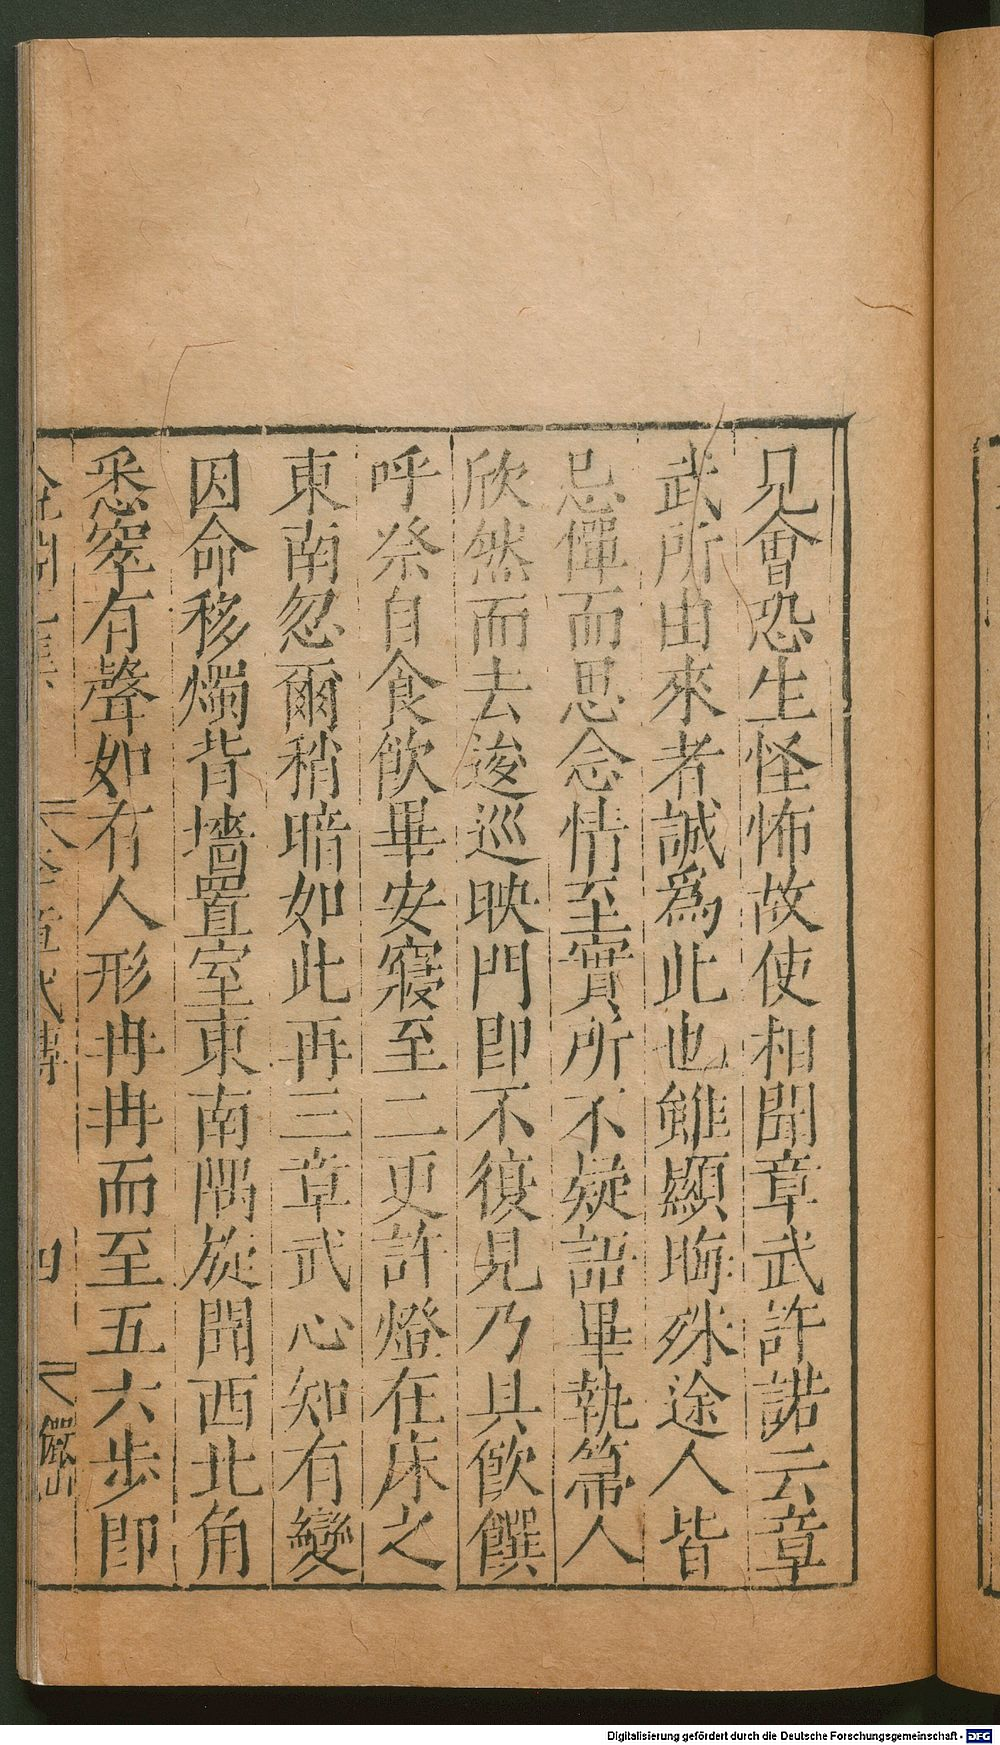 見會恐生怪怖故使相聞章武許諾云章
武所由來者誠爲此也雖顯晦殊途人皆
忌憚而思念情至實所不疑語畢執箒人
欣然而去逡巡映門即不復見乃具飲饌
呼祭自食飲畢安寢至二更許燈在床之
東南忽爾稍暗如此再三章武心知有變
因命移燭背墻置室東南隅旋聞西北角
悉窣有聲如有人形冉冉而至五六步即
四
Digitalisierung gefördert durch die Deutsche Forschungsgemeinschaft - DFG